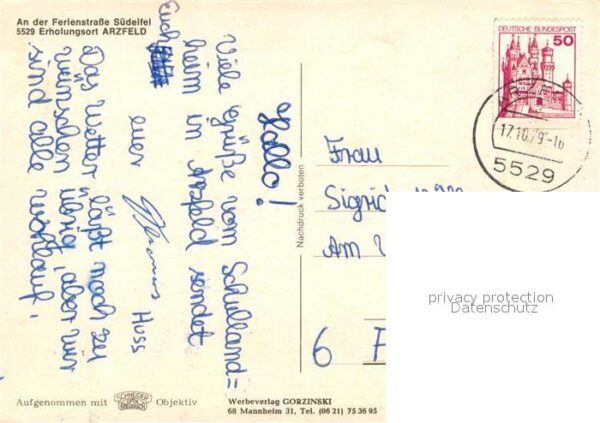 An der Ferienstraße Südeifel
5529 Erholungsort ARZFELD
Hallo!
Viele Grüße vom Schulland=
heim in Arzfeld sendet
Euch
euer Thomas Huss
Das Wetter läßt noch zu
wünschen übrig, aber wir
sind alle wohlauf.
Nachdruck verboten
DEUTSCHE BUNDESPOST
50
17.10.79-16
5529
Frau
Sigrid
Am
6 F
privacy protection
Datenschutz
Aufgenommen mit
Objektiv
Werbeverlag GORZINSKI
68 Mannheim 31, Tel. (06 21) 75 36 95